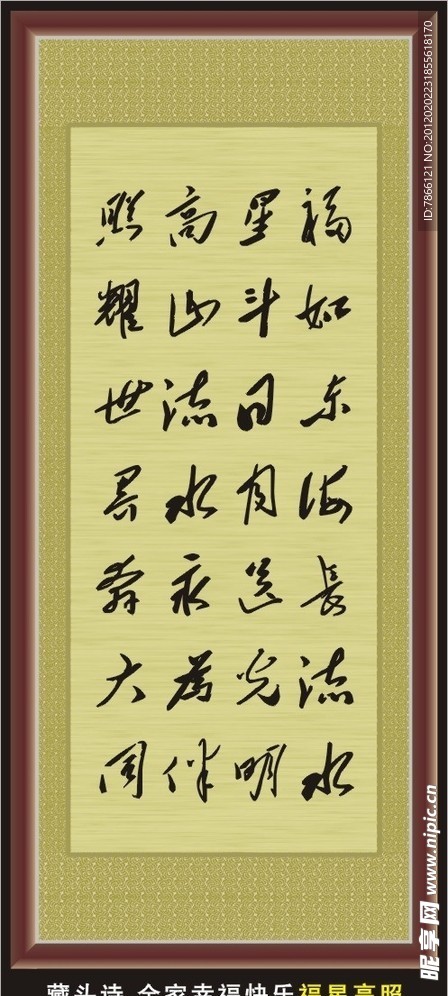 福如东海長流水
星斗日月送光明
高山流水永為伴
照耀世界奔大同
藏头诗 全家幸福快乐福星高照
ID:7866121 NO:20120202231855618170
昵享网 www.nipic.cn